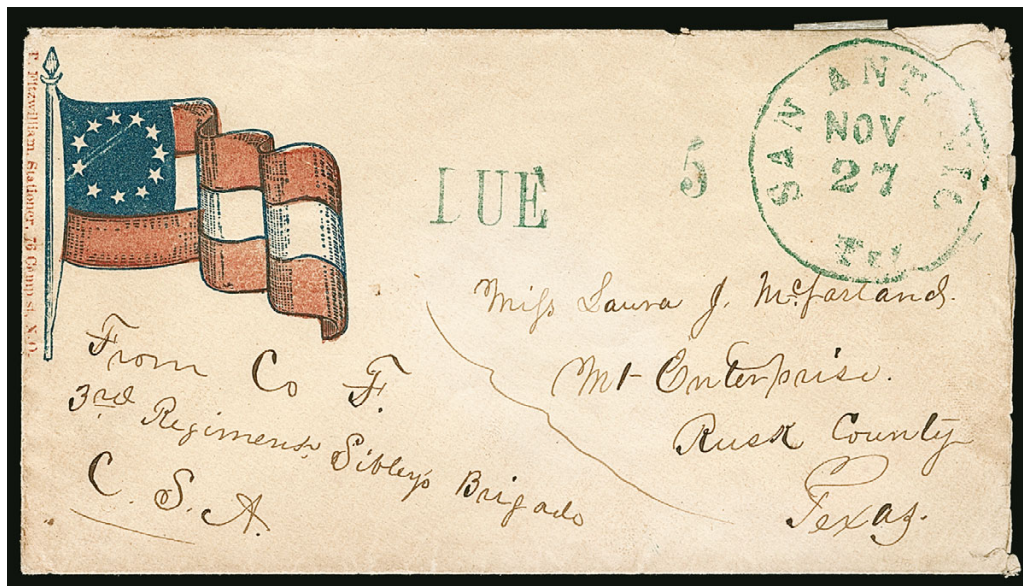 F. Fitzwilliam, Stationer, 76 Camp st. N.O.
DUE 5
SAN ANTONIO
NOV
27
Tex
Miss Laura J. McFarland.
Mt Enterprise.
Rusk County
Texas.
From Co F.
3rd Regiment, Sibley's Brigade
C. S. A.